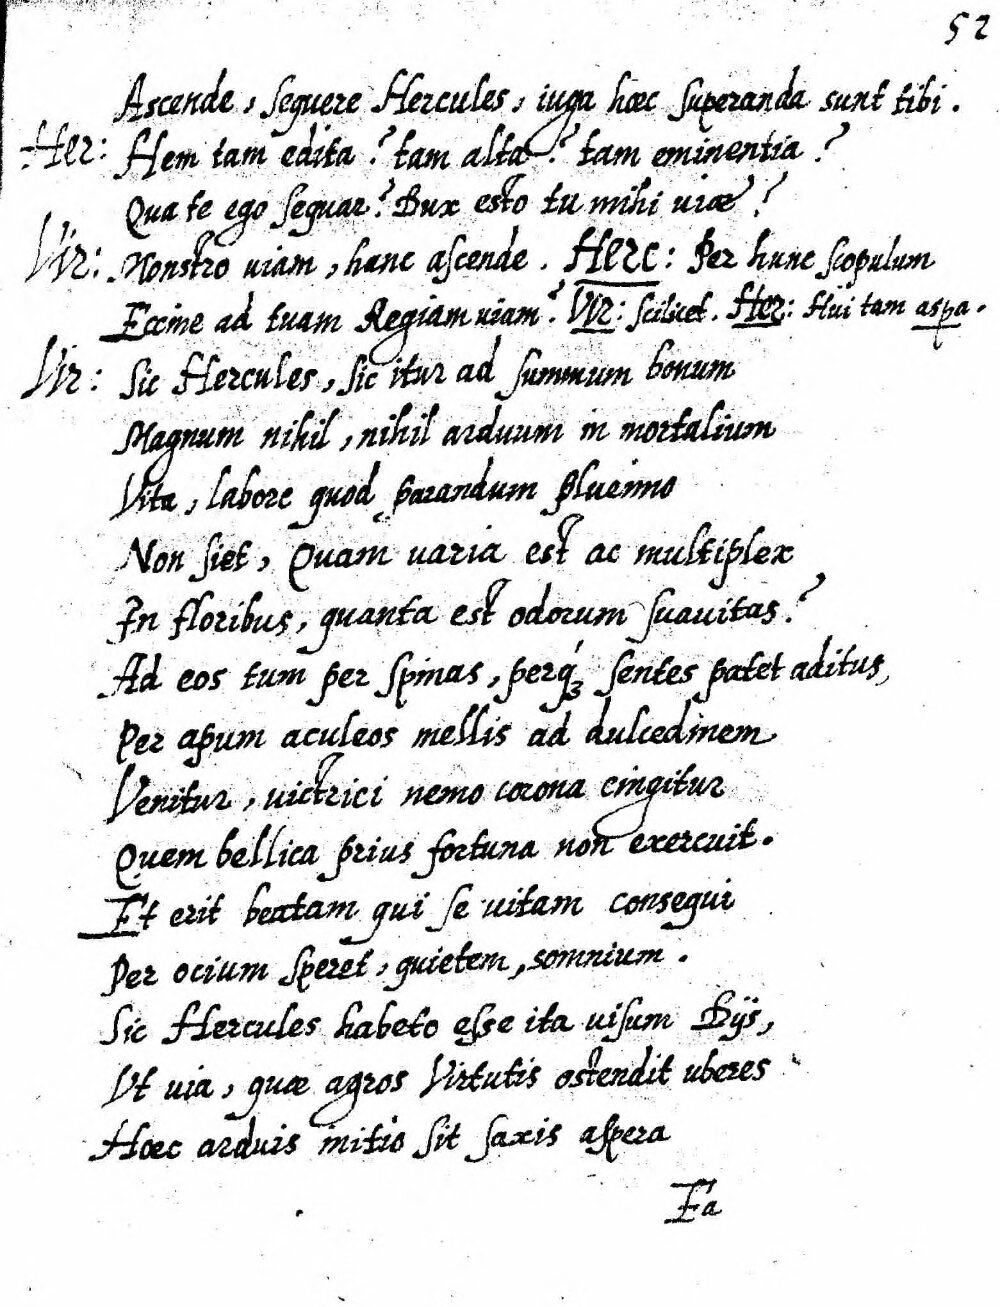 52
Ascende, sequere Hercules, iuga hæc superanda sunt tibi.
Her: Hem tam edita? tam alta? tam eminentia?
Qua te ego sequar? Dux esto tu mihi uiæ?
Vir: Monstro uiam, hanc ascende. Herc: Per hunc scopulum
Eccine ad tuam Regiam uiam? Vir: scilicet. Her: Hui tam aspa.
Vir: Sic Hercules, sic itur ad summum bonum
Magnum nihil, nihil arduum in mortalium
Vita, labore quod parandum
Non siet, Quam uaria est ac multiplex
In floribus, quanta est odorum suauitas?
Ad eos tum per spinas, perq́ꝫ sentes patet aditus,
Per apum aculeos mellis ad dulcedinem
Venitur, uictrici nemo corona cingitur
Quem bellica prius fortuna non exercuit.
Et erit beatam qui se uitam consequi
Per ocium speret, quietem, somnium.
Sic Hercules habeto esse ita uisum Dijs,
Vt uia, quæ agros Virtutis ostendit uberes
Hæc arduis initio sit saxis aspera
Fa